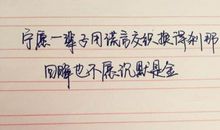 宁愿一辈子用谎言交织换得刹那
回眸也不愿沉默是金